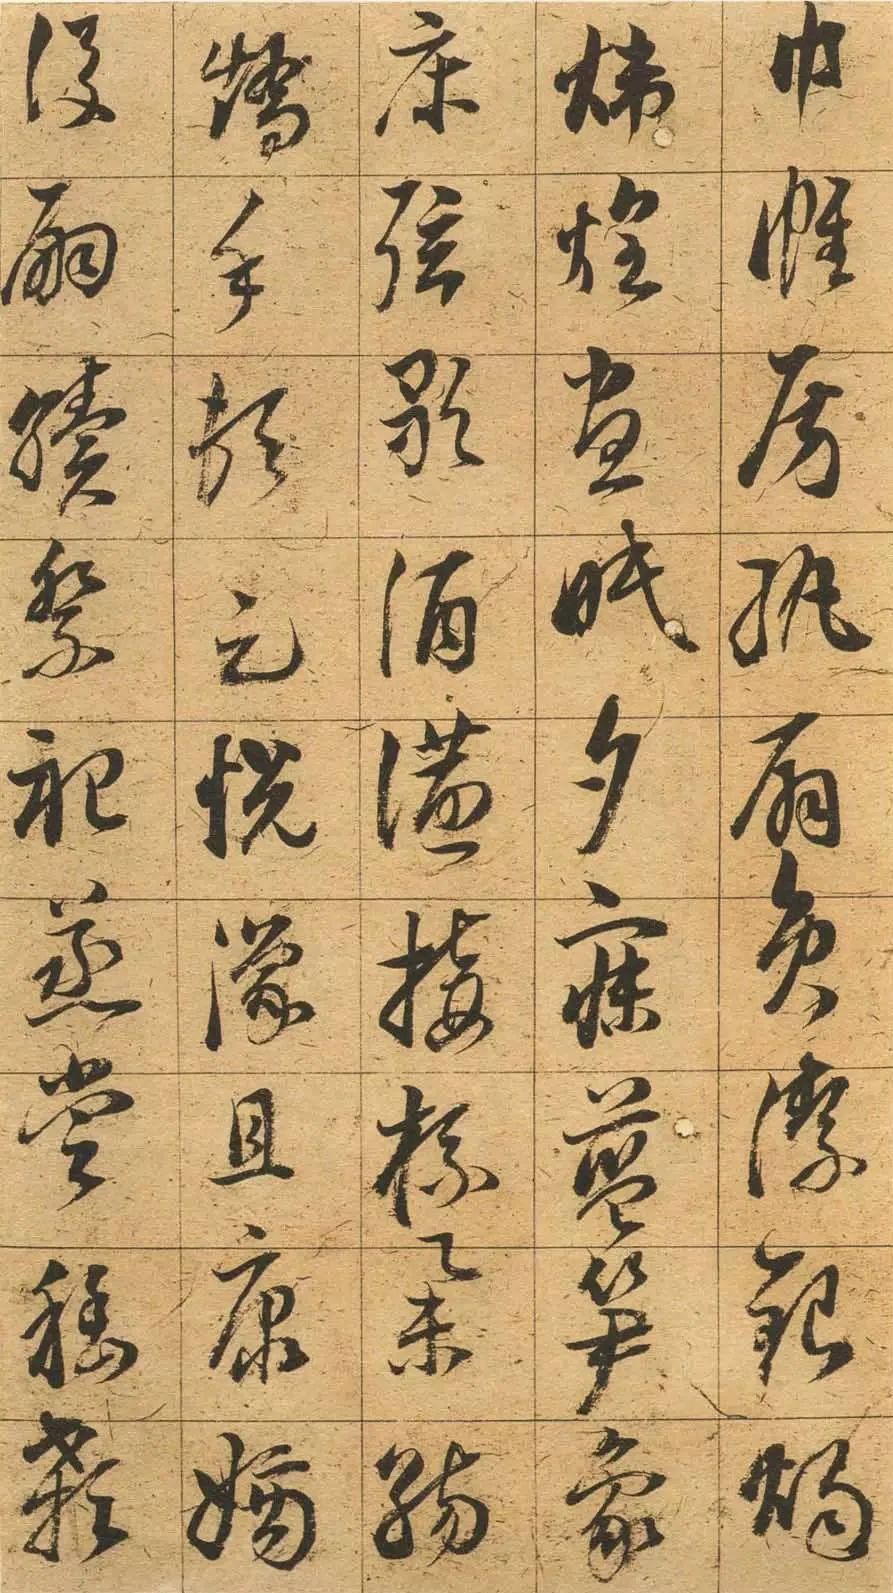 巾帷房紈扇員潔銀燭
煒煌晝眠夕寐藍笋象
床弦歌酒讌接杯舉觴
矯手頓足悅豫且康嫡
後嗣續祭祀蒸嘗稽顙